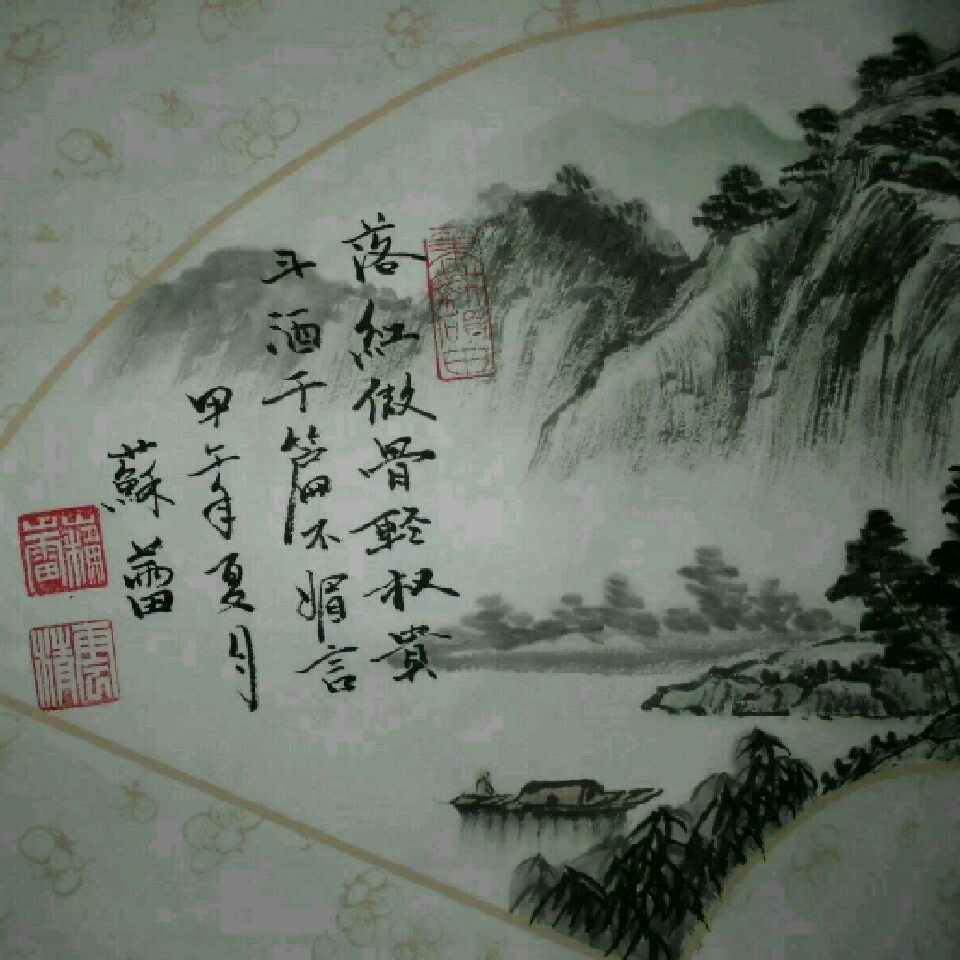 落紅做骨輕权貴
斗酒千篇不媚言
甲午年夏月
蘇蕾
蘇蕾